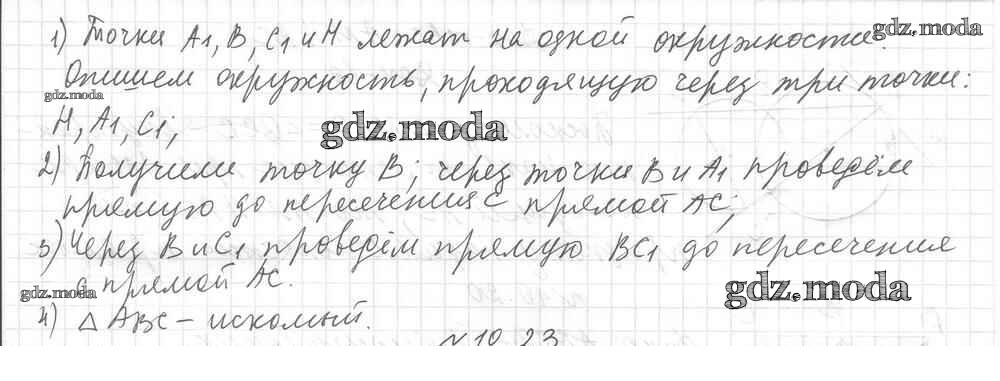 1) Точки A1, B, C1 и H лежат на одной окружности.
gdz.moda
Опишем окружность, проходящую через три точки:
gdz.moda
H, A1, C1;
gdz.moda
2) Получили точку B; через точки B и A1 проведём
прямую до пересечения с прямой AC;
3) Через B и C1 проведём прямую BC1 до пересечения
с прямой AC.
gdz.moda
gdz.moda
4) △ABC – искомый.
№10.23